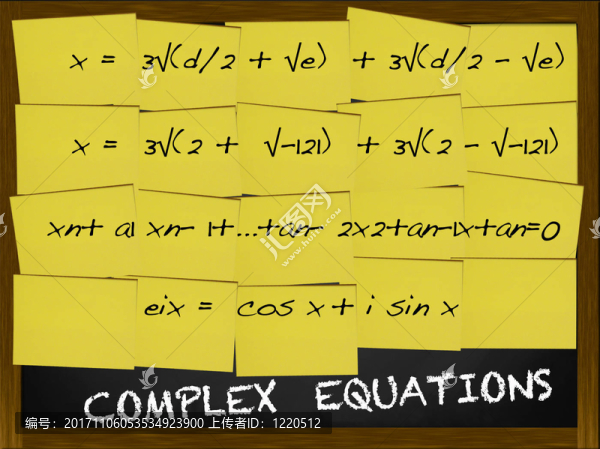 x = 3√(d/2 + √e) + 3√(d/2 - √e)
x = 3√(2 + √-121) + 3√(2 - √-121)
xn+ a1 xn- 1+...+an- 2x2+an-1x+an=0
eix = cos x + i sin x
COMPLEX EQUATIONS
汇图网
www.huitu.com
编号:20171106053534923900 上传者ID:1220512